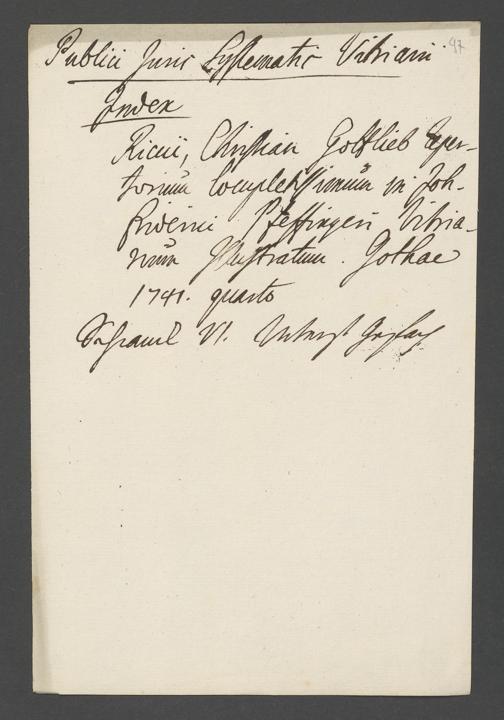 Publici Juris Systematis Vitriarii 47
Index
Ricii, Christian Gottlieb Reper-
torium Completissimum in Joh.
Friderici Pfeffingeri Vitria-
rium Illustratum. Gothae
1741. quarto
VI.